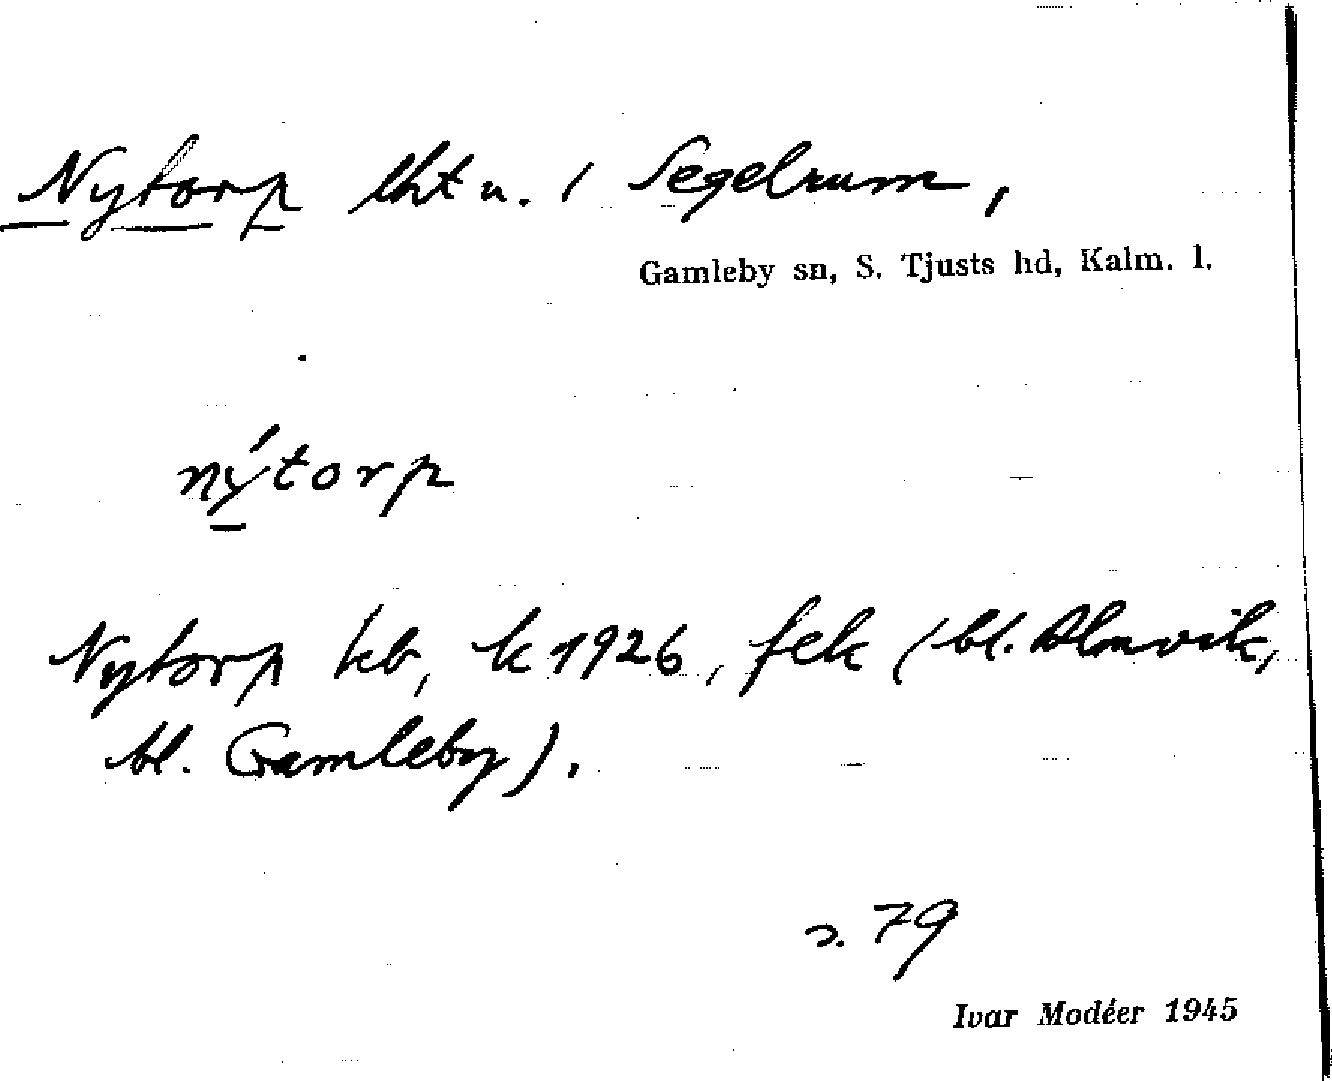 Nytorp lht u. / Segelrum,
Gamleby sn, S. Tjusts hd, Kalm. l.
nýtorp
Nytorp kb, k 1926, fek (bl. Almvik,
bl. Gamleby).
s. 79
Ivar Modéer 1945